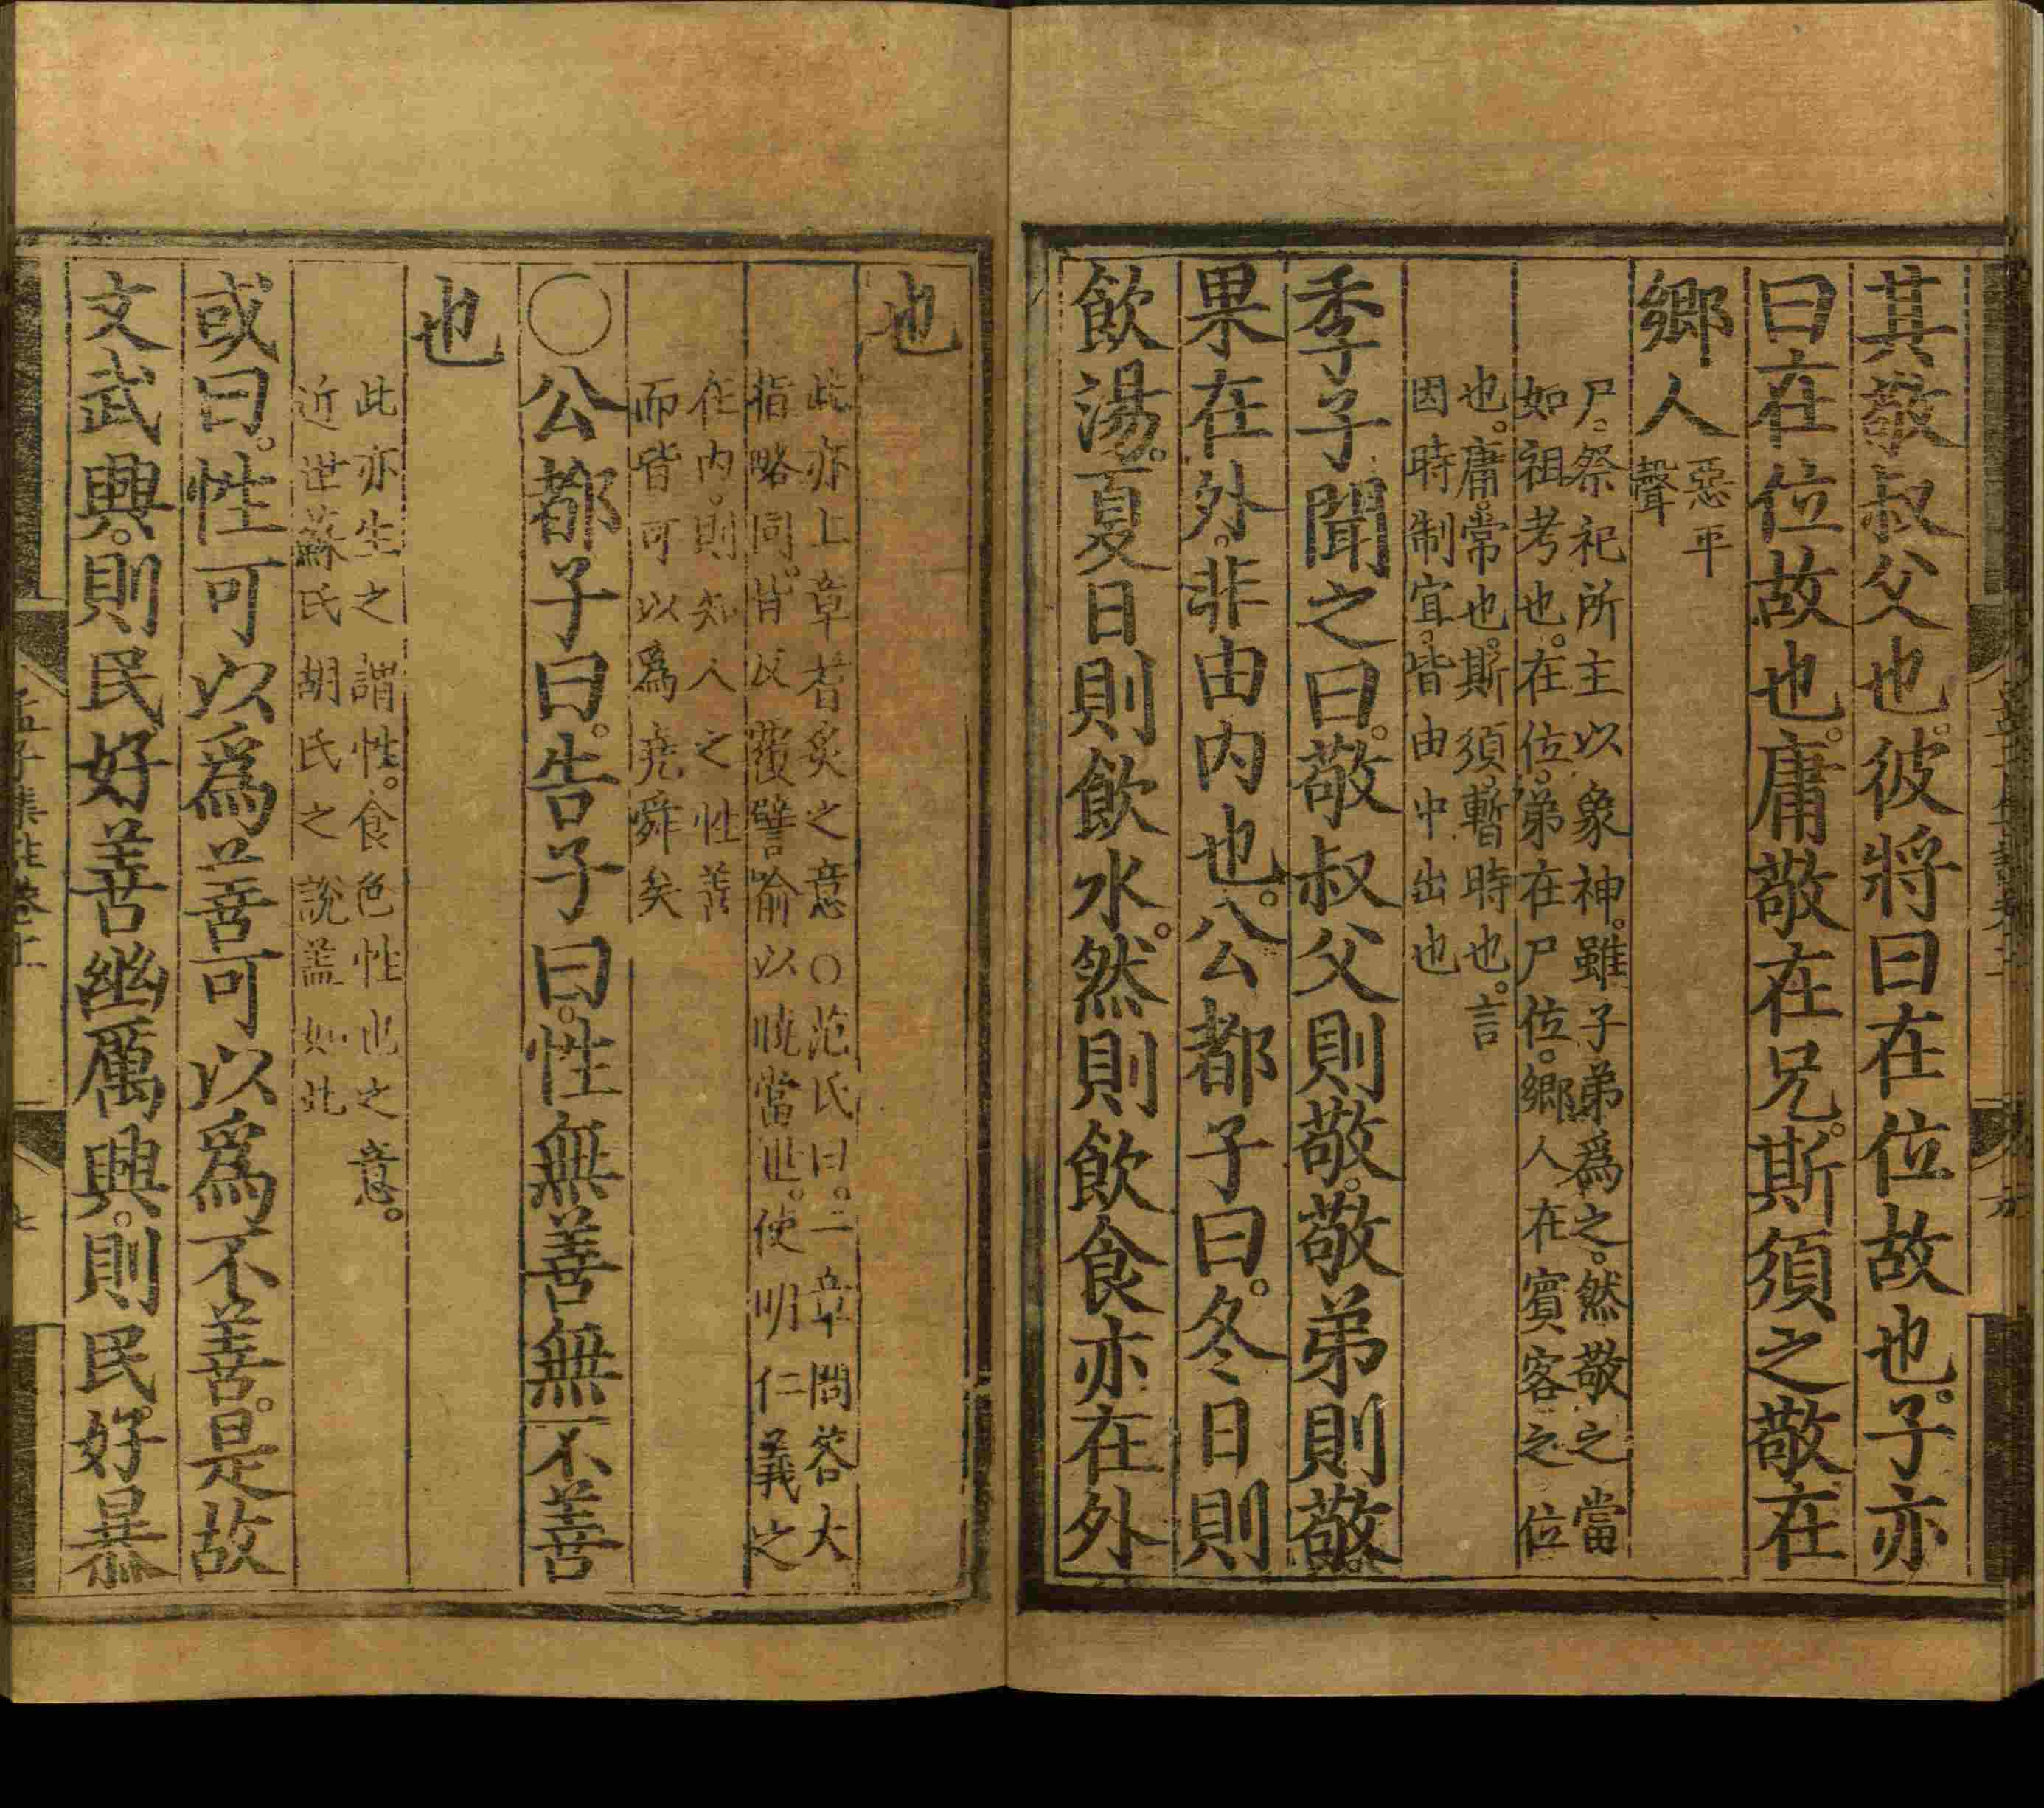 其敬叔父也。彼將曰在位故也。子亦
曰在位故也。庸敬在兄。斯須之敬在
鄉人
惡平
聲
尸。祭祀所主以象神。雖子弟爲之。然敬之當
如祖考也。在位。弟在尸位。鄉人在賓客之位
也。庸。常也。斯須。暫時也。言
因時制宜。皆由中出也
季子聞之曰。敬叔父則敬。敬弟則敬。
果在外。非由內也。公都子曰。冬日則
飲湯。夏日則飲水。然則飲食亦在外
也
此亦上章耆炙之意○范氏曰。二章問答大
指略同。皆反覆譬喻以曉當世。使明仁義之
在內。則知人之性善
而皆可以爲堯舜矣
○公都子曰。告子曰。性無善無不善
也
此亦生之謂性。食色性也之意。
近世蘇氏胡氏之說蓋如此
或曰。性可以爲善可以爲不善。是故
文武興。則民好善幽厲興。則民好暴
孟子集註卷十一
七